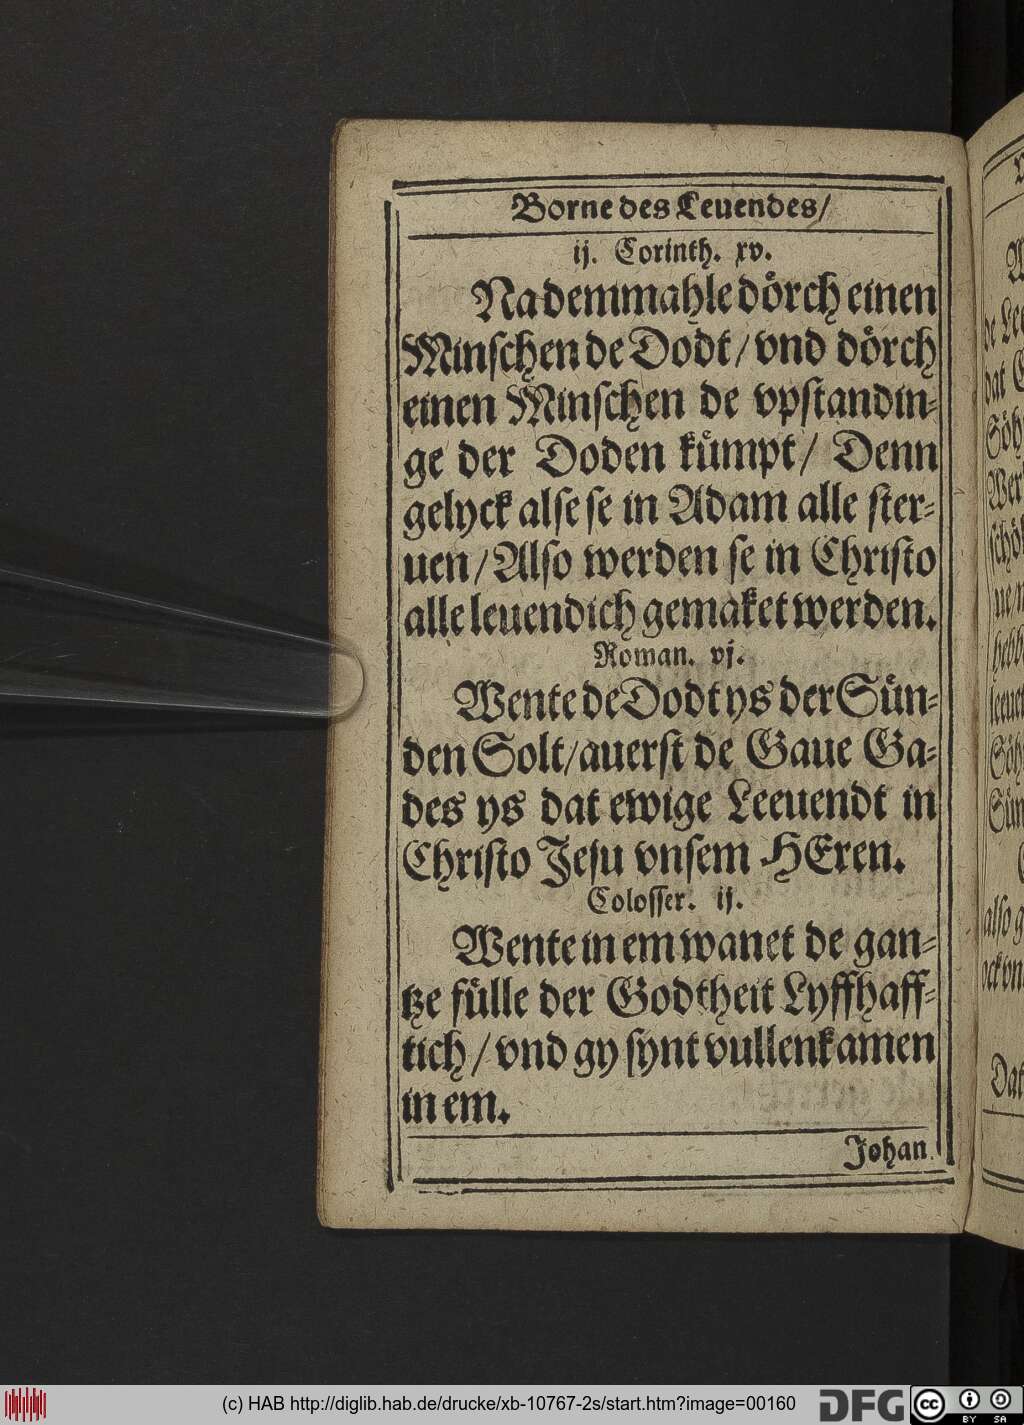 Borne des Leuendes/
ij. Corinth. xv.
Nademmahle dörch einen
Minschen de Dodt/ vnd dörch
einen Minschen de vpstandin-
ge der Doden kümpt/ Denn
gelyck alse se in Adam alle ster-
uen/ Also werden se in Christo
alle leuendich gemaket werden.
Roman. vj.
Wente de Dodt ys der Sün-
den Solt/ auerst de Gaue Ga-
des ys dat ewige Leeuendt in
Christo Jesu vnsem HEren.
Colosser. ij.
Wente in em wanet de gan-
tze fülle der Godtheit Lyffhaff-
tich/ vnd gy synt vullenkamen
in em.
Johan.
(c) HAB http://diglib.hab.de/drucke/xb-10767-2s/start.htm?image=00160
DFG
cc BY SA